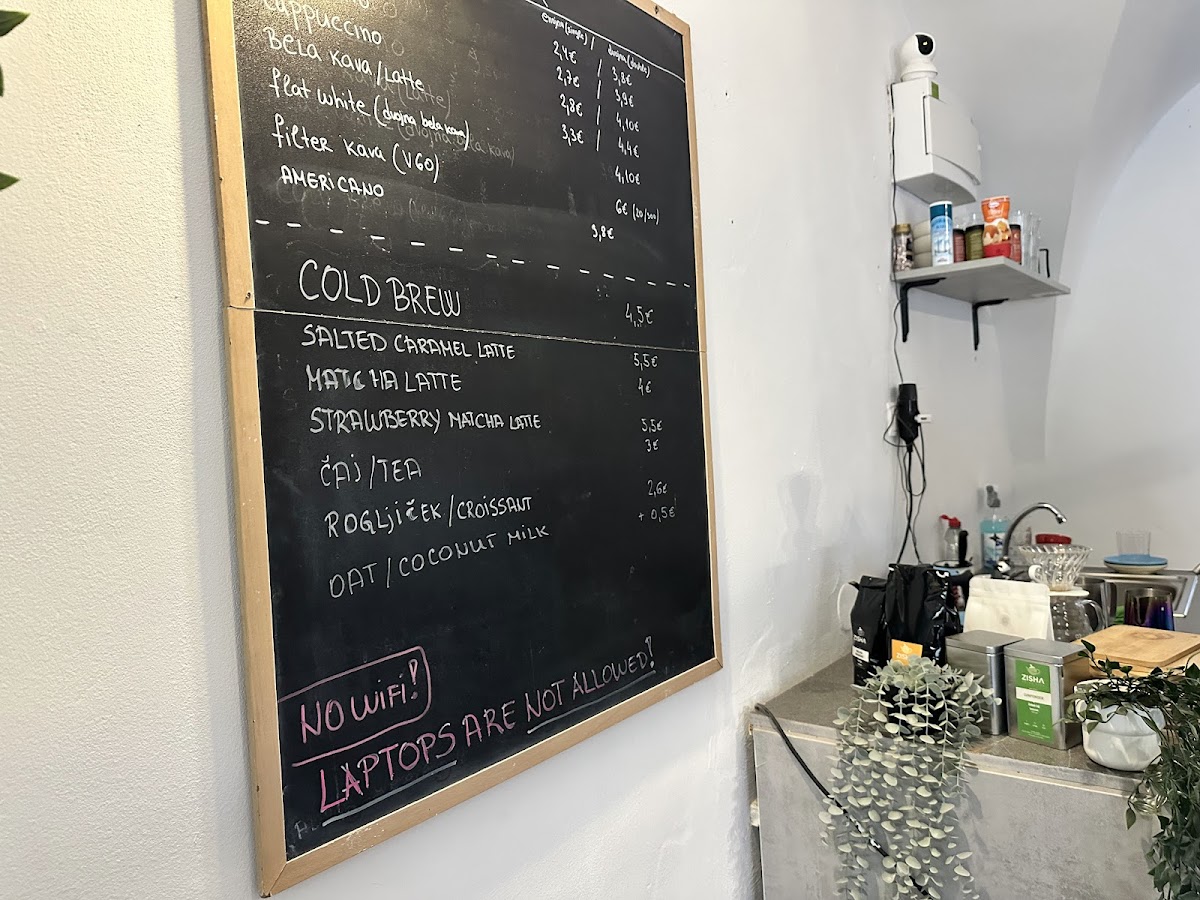 enojna (single) / dvojna (double)
Cappuccino 2,4€ / 3,8€
Bela kava/Latte 2,7€ / 3,9€
flat white (dvojna bela kava) 2,8€ / 4,10€
3,3€ / 4,4€
filter kava (V60) 4,10€
AMERICANO 6€ (20/300)
3,8€
COLD BREW 4,5€
SALTED CARAMEL LATTE 5,5€
MATCHA LATTE 4€
STRAWBERRY MATCHA LATTE 5,5€
ČAJ/TEA 3€
ROGLJIČEK/CROISSANT 2,6€
OAT/COCONUT MILK + 0,5€
NO WIFI!
LAPTOPS ARE NOT ALLOWED!
ZISHA
ZISHA